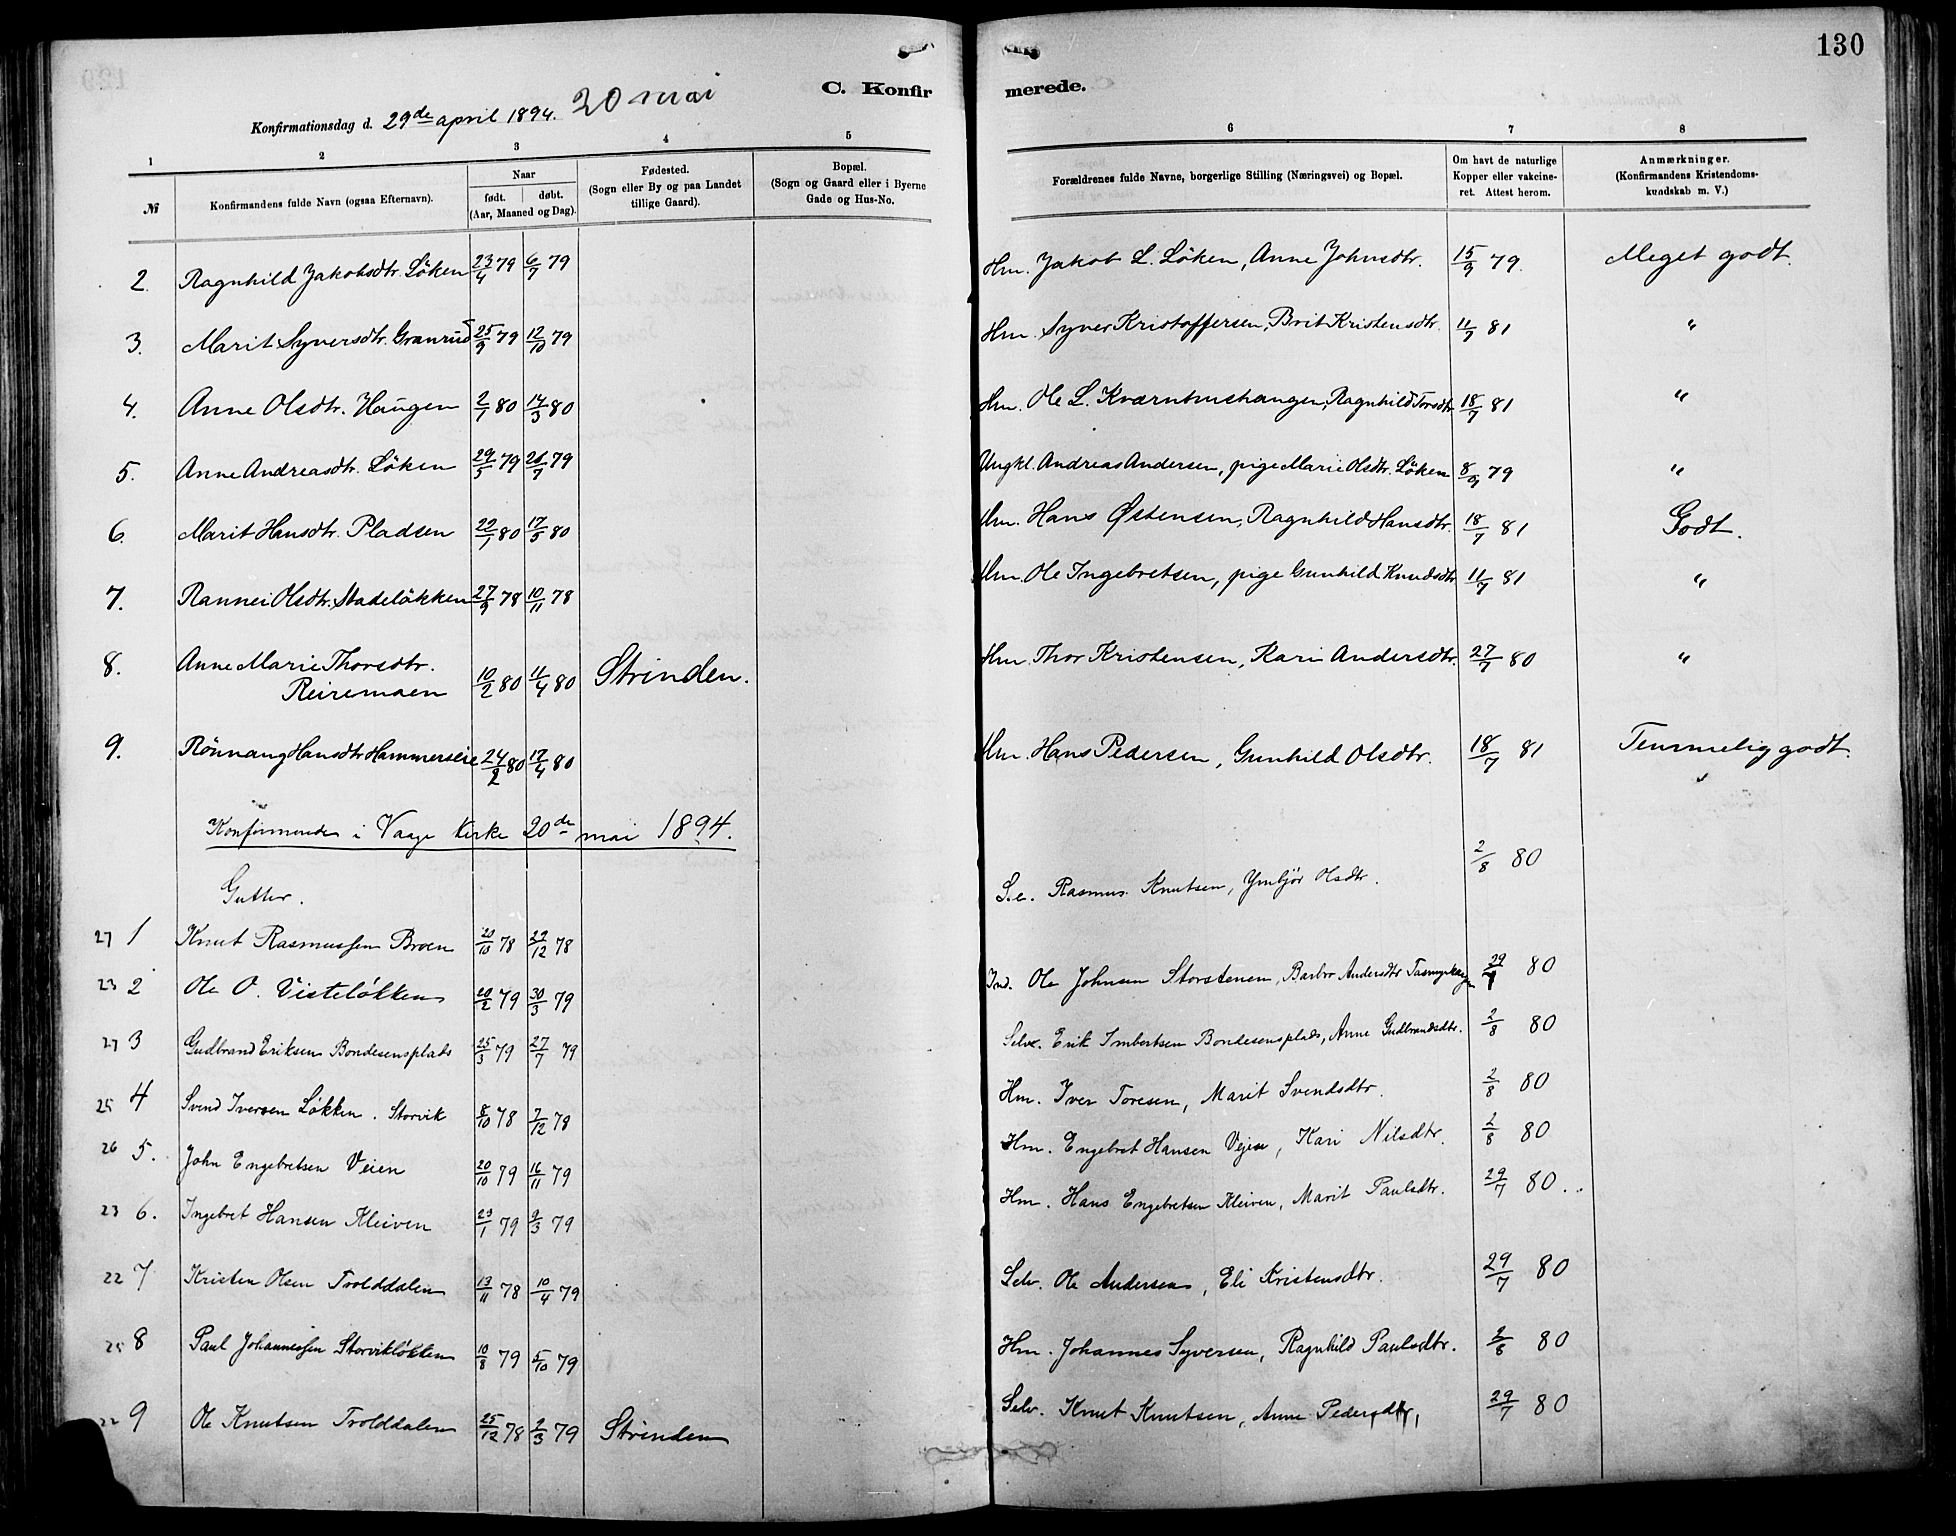 130
C. Konfirmerede.
Konfirmationsdag d. 29de april 1894. 20 mai
1 2 3 4 5 6 7 8
№
Konfirmandens fulde Navn (ogsaa Efternavn).
Naar
født. døbt.
(Aar, Maaned og Dag).
Fødested.
(Sogn eller By og paa Landet
tillige Gaard).
Bopæl.
(Sogn og Gaard eller i Byerne
Gade og Hus-No.
Forældrenes fulde Navne, borgerlige Stilling (Næringsvei) og Bopæl.
Om havt de naturlige
Kopper eller vakcine-
ret. Attest herom.
Anmærkninger.
(Konfirmandens Kristendoms-
kundskab m. V.)
2. Ragnhild Jakobsdtr. Löken 23/4 79 6/7 79 Hm. Jakob L. Löken, Anne Johnsdtr. 15/9 79. Meget godt.
3. Marit Syversdtr. Granrud 25/9 79 12/10 79 Hm. Syver Kristoffersen, Brit Kristensdtr. 11/7 81 "
4. Anne Olsdtr. Haugen 2/1 80 14/3 80 Hm. Ole L. Kværnbruhaugen, Ragnhild Torsdtr 18/7 81 "
5. Anne Andreasdtr. Löken 29/5 79 26/7 79 Ungkl. Andreas Andersen, pige Marie Olsdtr. Löken 8/9 79 "
6. Marit Hansdtr. Pladsen 22/1 80 17/5 80 Hm. Hans Østensen, Ragnhild Hansdtr. 18/7 81 Godt.
7. Rannei Olsdtr. Stadelökken 27/9 78 10/11 78 Hm. Ole Ingebretsen, pige Gunhild Knudsdtr 11/7 81 "
8. Anne Marie Thorsdtr.
Reiremoen 10/2 80 11/4 80 Strinden. Hm. Thor Kristensen, Kari Andersdtr. 27/7 80 "
9. Rönnaug Hansdtr Hammerseie 24/2 80 17/4 80 Hm. Hans Pedersen, Gunhild Olsdtr. 18/7 81 Temmelig godt.
Konfirmerede i Vaage Kirke 20de mai 1894.
Gutter.
27 1 Knut Rasmussen Broen 20/10 78 22/12 78 S.e. Rasmus Knutsen, Ymbjör Olsdtr. 2/8 80
23 2 Ole O. Visteløkken 20/2 79 30/3 79 Ind. Ole Johnsen Storstenen, Barbro Andersdtr 29/7 80
27 3 Gudbrand Eriksen Bondesensplads 25/3 79 27/7 79 Selve. Erik Imbertsen Bondesensplads, Anne Gudbrandsdtr. 2/8 80
25 4 Svend Iversen Løkken. Storvik 8/10 78 7/12 78 Hm. Iver Toresen, Marit Svendsdtr. 2/8 80
26 5. John Engebretsen Veien 20/10 79 16/11 79 Hm. Engebret Hansen Vejen, Kari Nilsdtr. 2/8 80
23 6. Ingebret Hansen Kleiven 29/1 79 9/3 79 Hm. Hans Engebretsen Kleiven, Marit Paulsdtr. 29/7 80.
22 7 Kristen Olsen Trolddalen 13/11 78 10/4 79 Selv. Ole Andersen, Eli Kristensdtr. 29/7 80
25 8 Paul Johannessen Storvikløkken 10/8 79 5/10 79 Hm. Johannes Syversen, Ragnhild Paulsdtr. 2/8 80
22 9 Ole Knutsen Trolddalen 25/12 78 2/3 79 Strinden Selv. Knut Knutsen, Anne Pedersdtr, 29/7 80